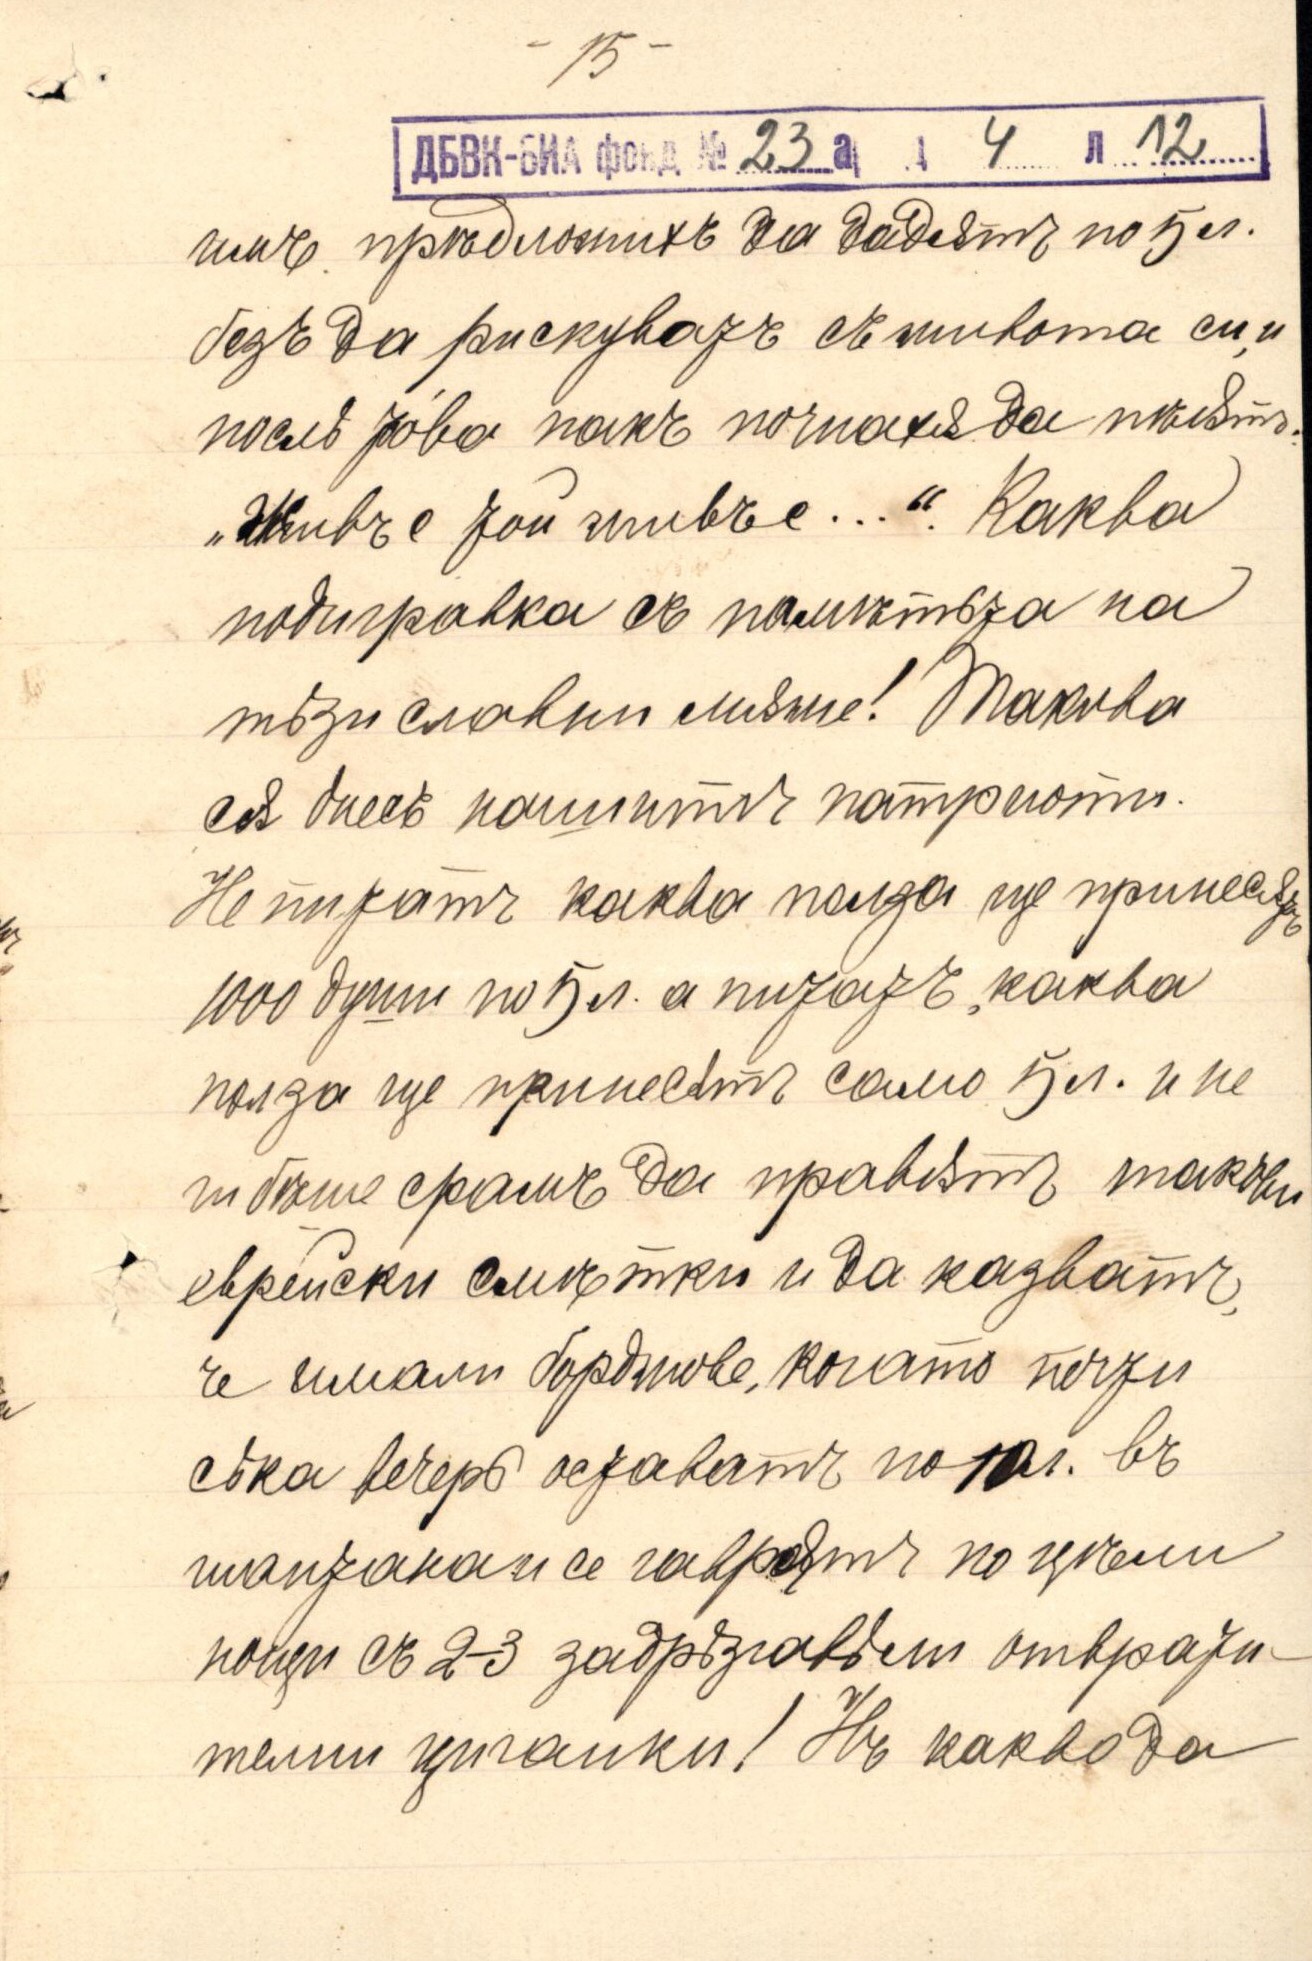 - 15 -
ДБВК-БИА фонд № 23 а 4 л 12
имъ прѣдложихъ да дадѫтъ по 5 л.
безъ да рискуватъ съ живота си, и
послѣ това пакъ почнахѫ да пѣѭтъ:
„Живъ е той живъ е ...“. Каква
подигравка съ памѣтьта на
тѣзи славни мѫже! Такива
сѫ днесь нашитѣ патриоти.
Не питатъ каква полза ще принесѫтъ
1000 души по 5 л. а питатъ, каква
полза ще принесѫтъ само 5 л. и не
ги бѣше срамъ да правѭтъ такъви
еврейски смѣтки и да казватъ,
че имали борджове, когато почти
сѣка вечерь оставатъ по 10 л. въ
шантана и се гаврѭтъ по цѣли
нощи съ 2-3 задрѣзгавѣли отврати-
телни циганки! Нъ какво да